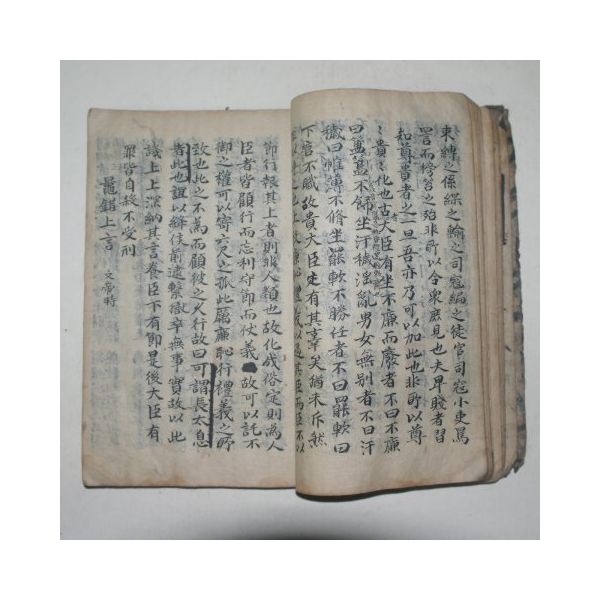 束縛之係緤之輸之司寇編之徒官司寇小吏罵
詈而榜笞之殆非所以令衆庶見也夫卑賤者習
知尊貴者之一旦吾亦乃可以加此也非所以尊
〻貴〻化也古者大臣有坐不廉而廢者不曰不廉
曰簠簋不飾坐汙穢淫亂男女無別者不曰汙
穢曰帷薄不修坐罷軟不勝任者不曰罷軟曰
下官不職故貴大臣定有其辜矣猶未斥然
禮義以遇其臣而臣不以
節行報其上者則非人類也故化成俗定則為人
臣者皆顧行而忘利守節而仗義故可以託不
御之權可以寄六尺之孤此厲廉恥行禮義之所
致也此之不為而顧彼之久行故曰可謂長太息
者此也誼以絳侯前逮繫獄卒無事實故以此
譏上上深納其言養臣下有節是後大臣有
罪皆自殺不受刑
鼂錯上言 文帝時